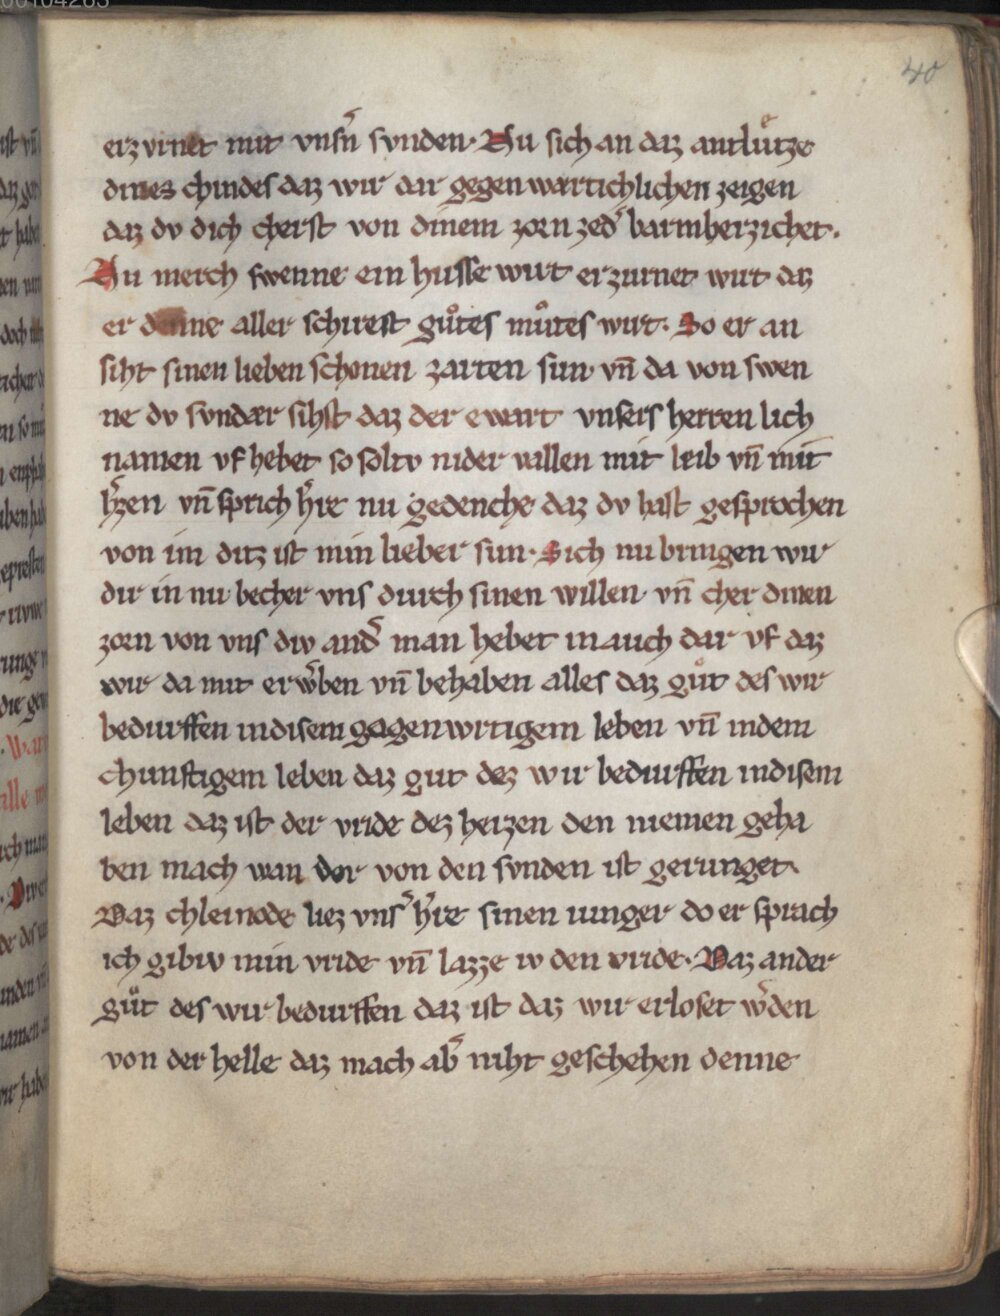 40
erzvrnet mit vnsn̄ svnden· Nu sich an daz antluͤtze
dines chindes daz wir dar gegenwartichlichen zeigen
daz dv dich cherst von dinem zorn zed͛ barmherzichet·
Nu merch swenne ein husse wirt erzurnet wirt daz
er denne aller schirest guͦtes muͦtes wirt· So er an
siht sinen lieben schonen zarten sun vn̄ da von swen
ne dv svndær sihst daz der ewart vnsers herren lich
namen vf hebet so soltv nider vallen mit leib vn̄ mit
h͛zen vn̄ sprich h͛re nu gedenche daz dv hast gesprochen
von im ditz ist min lieber sun· Sich nu bringen wir
dir in nu becher vns durch sinen willen vn̄ cher dinen
zorn von vns diw and͛ man hebet in auch dar vf daz
wir da mit erw͛ben vn̄ behaben alles daz guͦt des wir
bedurffen indisem gagenwrtigem leben vn̄ indem
chunftigem leben daz gut dez wir bedurffen indisem
leben daz ist der vride dez herzen den niemen geha
ben mach wan der von den svnden ist gerunget·
Daz chleinode liez vns͛ h͛re sinen iunger do er sprach
ich gibiv min vride vn̄ lazze iv den vride· Daz ander
guͦt des wir bedurffen daz ist daz wir erloset w͛den
von der helle daz mach ab͛ niht geschehen denne